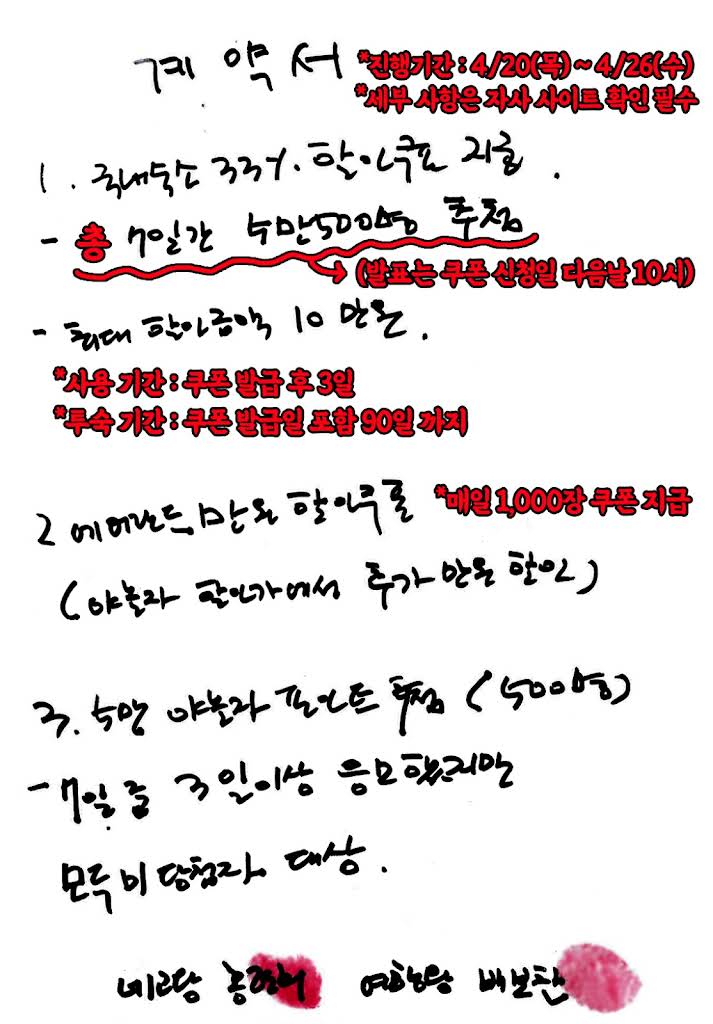 계약서
*진행기간 : 4/20(목) ~ 4/26(수)
*세부 사항은 자사 사이트 확인 필수
1. 국내숙소 33%. 할인쿠폰 지급.
- 총 7일간 5만500명 추첨
(발표는 쿠폰 신청일 다음날 10시)
- 최대 할인금액 10만원.
*사용 기간 : 쿠폰 발급 후 3일
*투숙 기간 : 쿠폰 발급일 포함 90일 까지
2 에버랜드 만원 할인쿠폰 *매일 1,000장 쿠폰 지급
(야놀자 할인가에서 추가 만원 할인)
3. 5만 야놀자 포인트 추첨 (500명)
- 7일 중 3일이상 응모했지만
모두 미당첨자 대상.
네고왕 홍현희 여행왕 배보찬